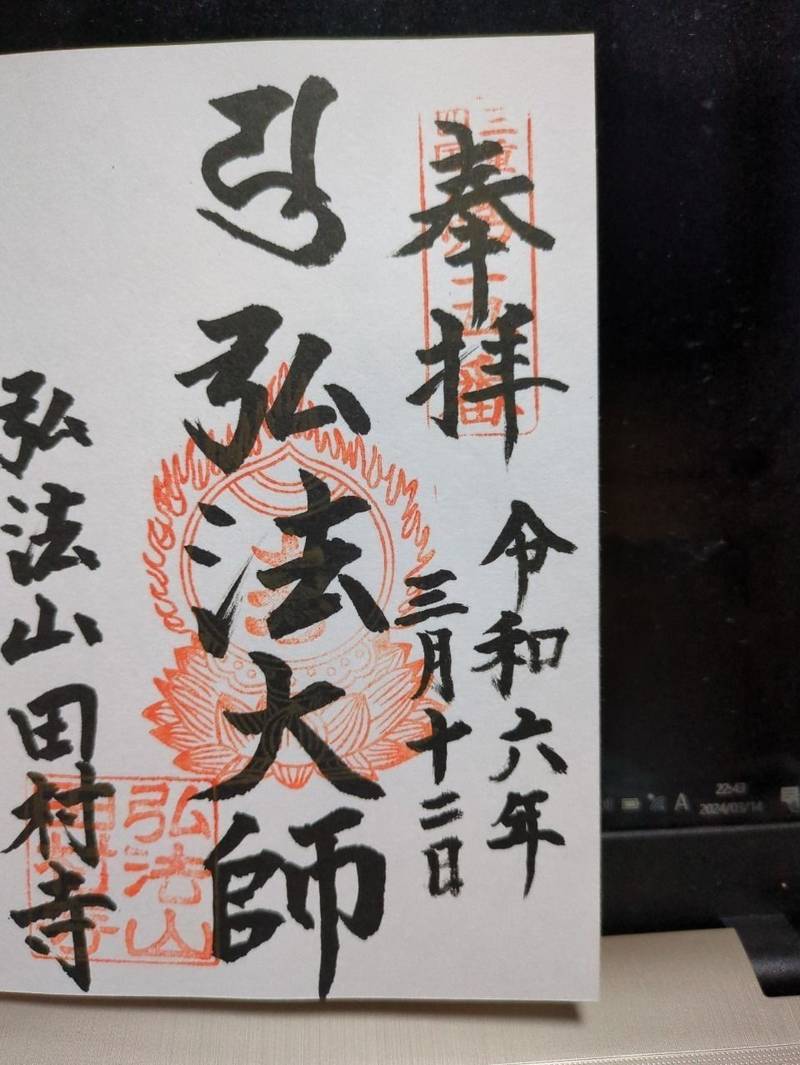 三重
四国
奉拝
令和六年
三月十二日
弘法大師
弘法山田村寺
弘法山
田村寺
A
22:43
2024/03/14